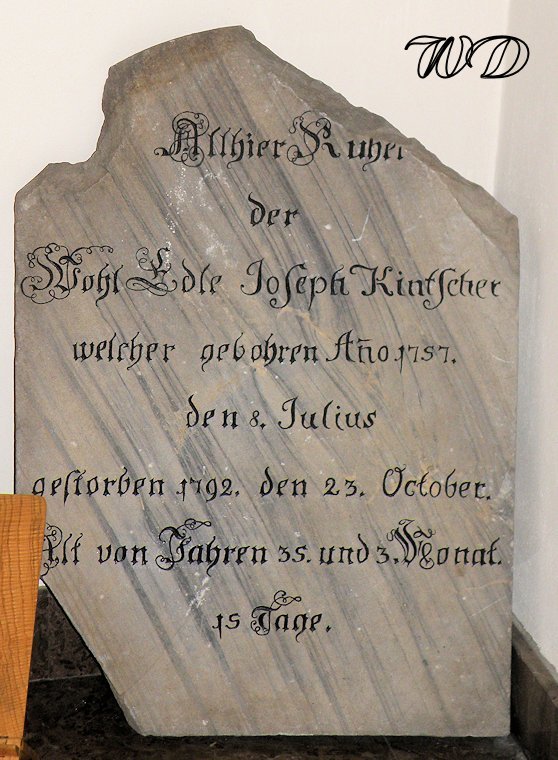 WD
Allhier Ruhet
der
Wohl Edle Joseph Kintscher
welcher gebohren Año 1757.
den 8. Julius
gestorben 1792. den 23. October.
Alt von Jahren 35. und 3. Monat.
15 Tage.